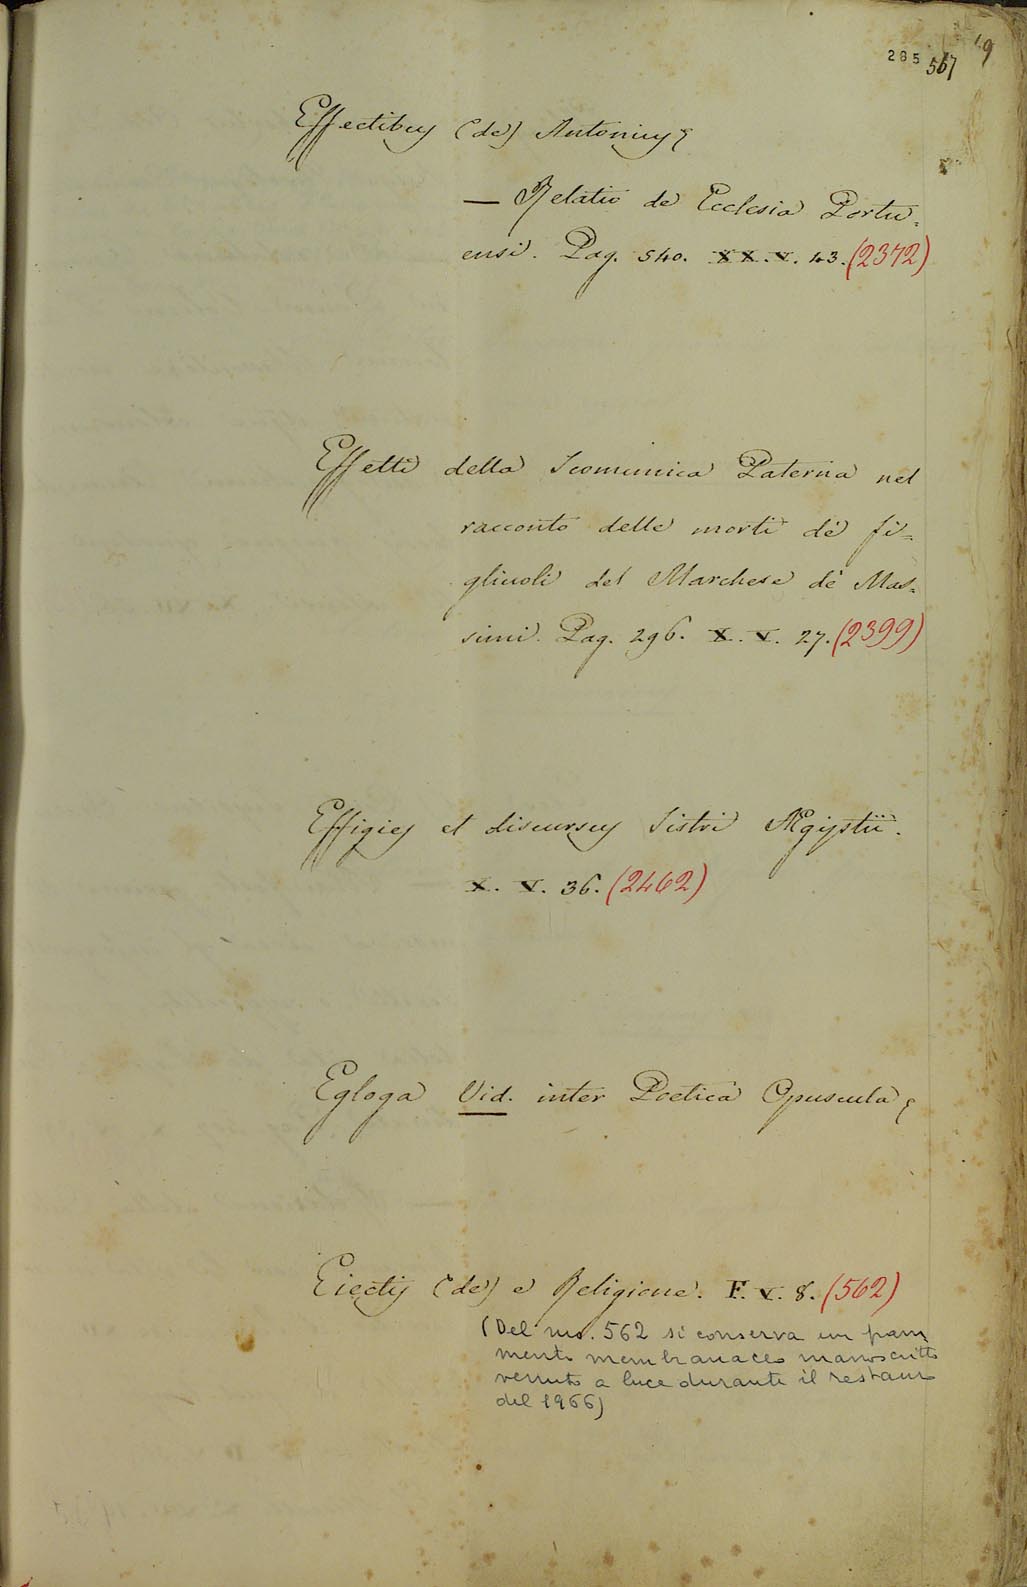 285 567 19
Effectibus (de) Antonius
— Relatio de Ecclesia Portu=
ensi. Pag. 540. XX. V. 43. (2372)
Effetti della Scomunica Paterna nel
racconto delle morti de' fi=
gliuoli del Marchese de' Mas=
simi. Pag. 296. X. V. 27. (2399)
Effigies et discursus Sistri Ægiptii.
X. V. 36. (2462)
Egloga Vid. inter Poetica Opuscula
Eiectis (de) a Religione. F. V. 8. (562)
(Del ms. 562 si conserva un fram
mento membranaceo manoscritto
venuto a luce durante il restauro
del 1966)